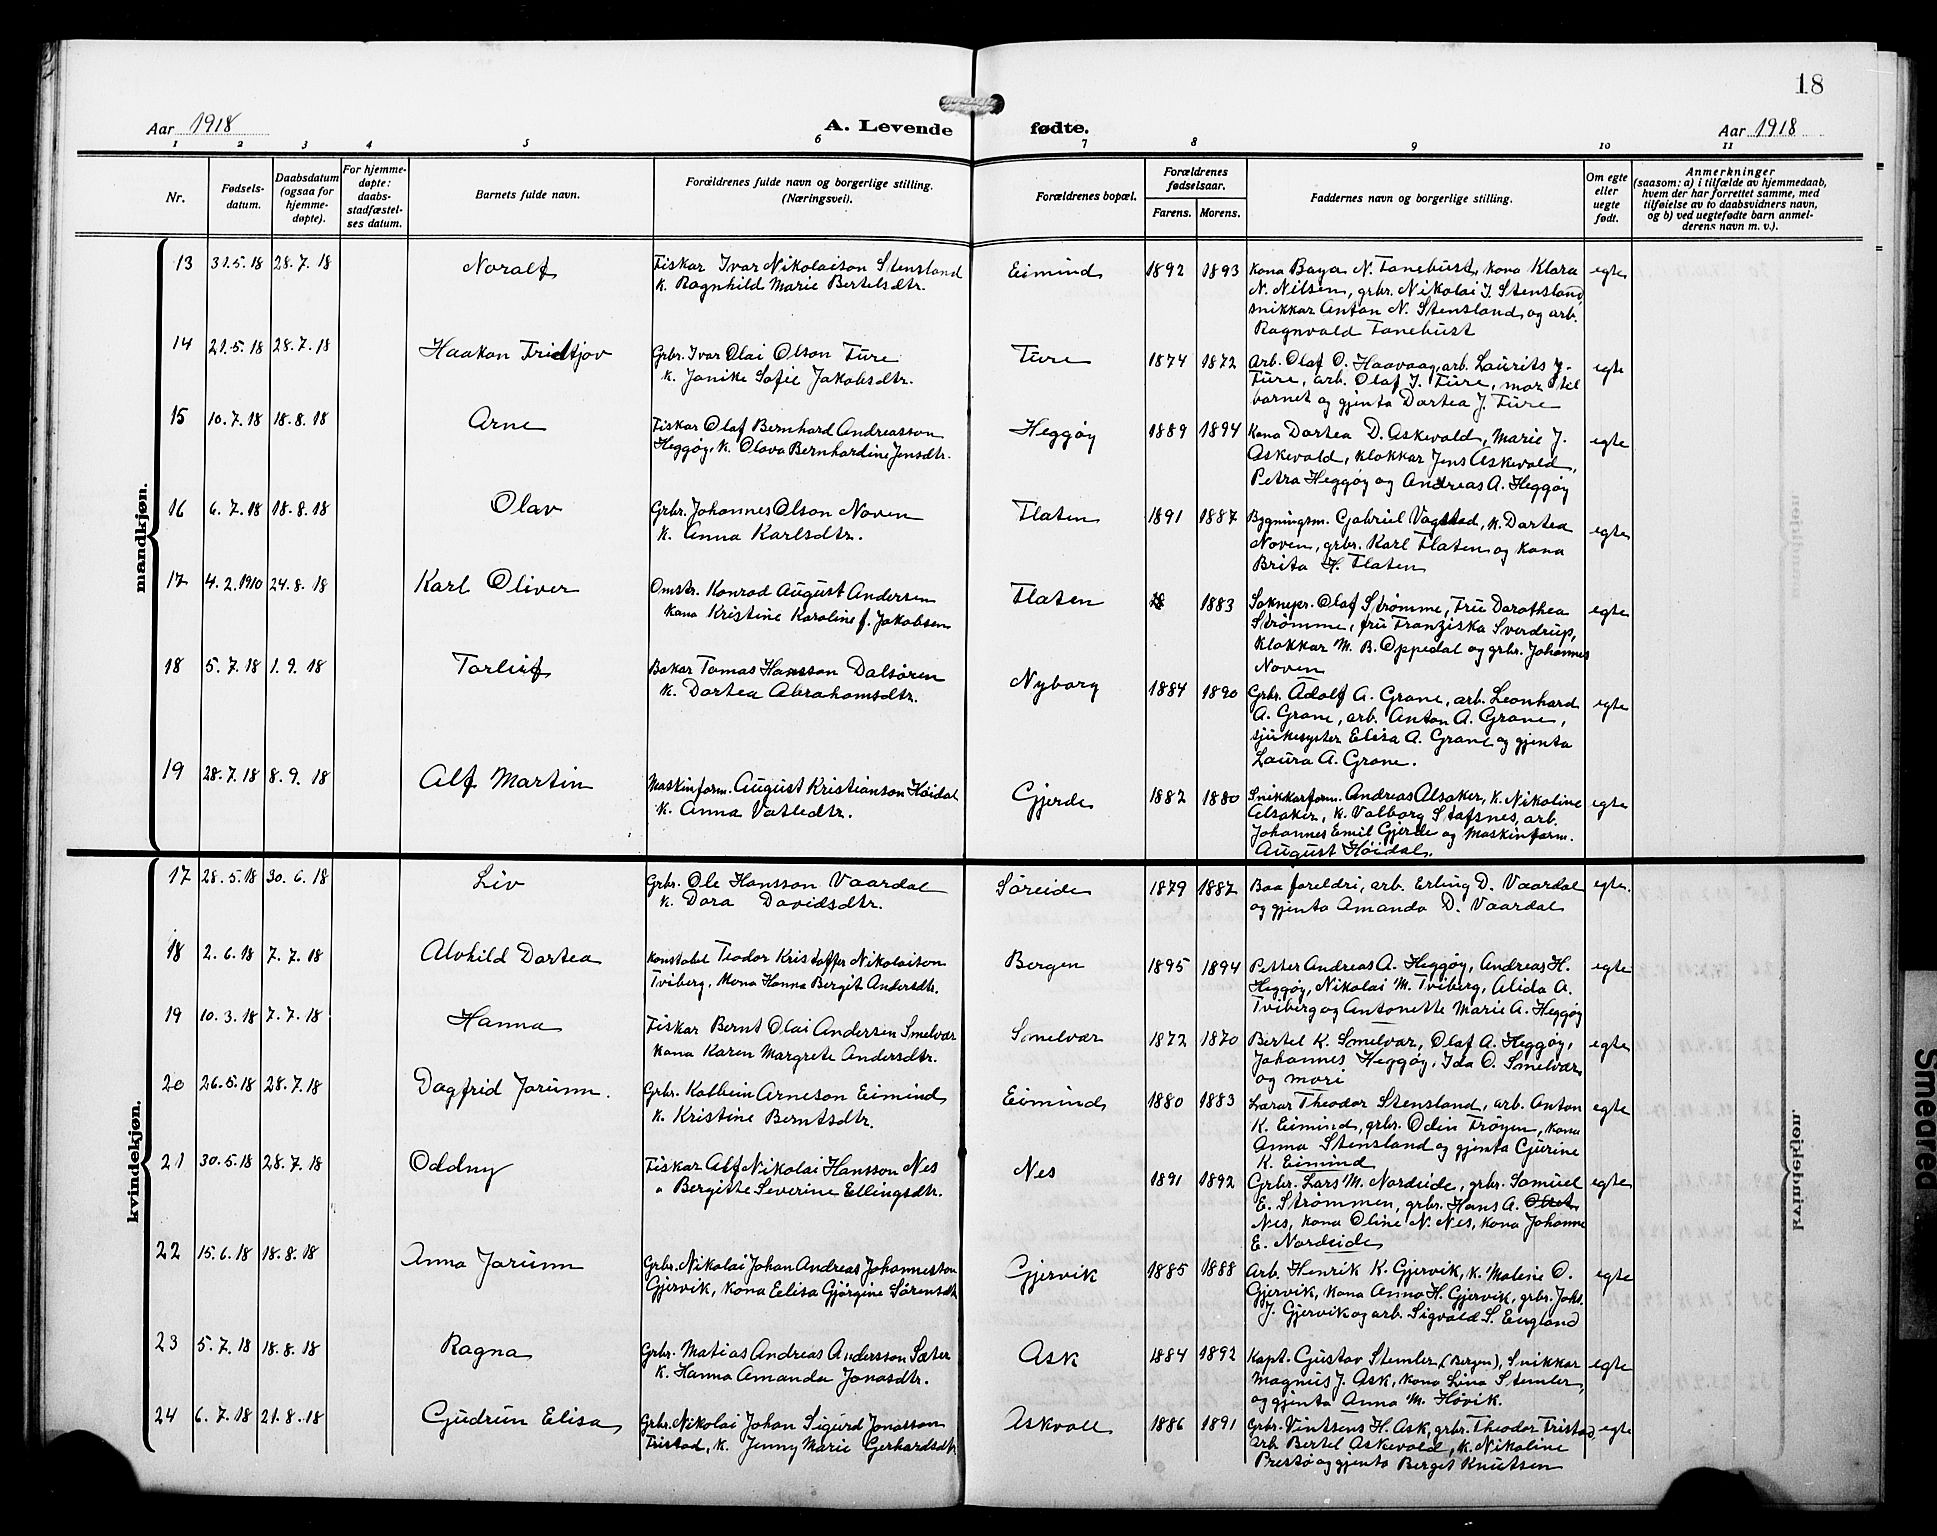 18
Aar 1918
A. Levende fødte.
Aar 1918
1 2 3 4 5 6 7 8 9 10 11
Nr.
Fødsels-
datum.
Daabsdatum
(ogsaa for
hjemme-
døpte).
For hjemme-
døpte:
daabs-
stadfæstel-
ses datum.
Barnets fulde navn.
Forældrenes fulde navn og borgerlige stilling.
(Næringsvei).
Forældrenes bopæl.
Forældrenes
fødselsaar.
Farens. Morens.
Faddernes navn og borgerlige stilling.
Om egte
eller
uegte
født.
Anmerkninger
(saasom: a) i tilfælde av hjemmedaab,
hvem der har forrettet samme, med
tilføielse av to daabsvidners navn,
og b) ved uegtefødte barn anmel-
derens navn m. v.).
mandkjøn.
13 31.5.18 28.7.18 Noralf
Fiskar Ivar Nikolaison Stensland
k. Ragnhild Marie Bertelsdtr.
Eimind 1892 1893
Kona Baya N. Tanehust, kona Klara
N. Nilsen, grbr. Nikolai J. Stensland,
snikkar Anton N. Stensland og arb.
Ragnvald Tanehust
egte
14 21.5.18 28.7.18 Haakon Fridtjov
Grbr. Ivar Olai Olson Fure
k. Janike Sofie Jakobsdtr.
Fure 1874 1872
Arb. Olaf O. Haavaag, arb. Laurits J.
Fure, arb. Olaf J. Fure, mor til
barnet og gjenta Dortea J. Fure
egte
15 10.7.18 18.8.18 Arne
Fiskar Olaf Bernhard Andreasson
Heggøy, k. Olava Bernhardine Jensdtr.
Heggøy 1889 1894
Kona Dortea D. Askevold, Marie J.
Askevold, klokkar Jens Askevold,
Petra Heggøy og Andreas A. Heggøy
egte
16 6.7.18 18.8.18 Olav
Grbr. Johannes Olson Noven
k. Anna Karlsdtr.
Flaten 1891 1887
Bygningsm. Gabriel Vagstad, k. Dortea
Noven, grbr. Karl Flaten og kona
Brita H. Flaten
egte
17 4.2.1910 24.8.18 Karl Oliver
Omstr. Konrad August Andersen
kona Kristine Karoline f. Jakobsen
Flaten 18 1883
Soknepr. Olaf Strømme, Fru Dorothea
Strømme, fru Franziska Sverdrup,
klokkar M. B. Oppedal og grbr. Johannes
Noven
egte
18 5.7.18 1.9.18 Torleif
Bakar Tomas Hansson Dalsøren
k. Dortea Abrahamsdtr.
Nyborg 1884 1890
Grbr. Adolf A. Grane, arb. Leonhard
A. Grane, arb. Anton A. Grane,
sjukesyster Elisa A. Grane og gjenta
Laura A. Grane.
egte
19 28.7.18 8.9.18 Alf Martin
Maskinform. August Kristianson Høidal
k. Anna Vatledtr.
Gjerde 1882 1880
Snikkarform. Andreas Alsaker, k. Nikoline
Alsaker, k. Valborg Stafsnes, arb.
Johannes Emil Gjerde og Maskinform.
August Høidal.
egte
kvindekjøn.
17 28.5.18 30.6.18 Liv
Grbr. Ole Hansson Vaardal
k. Dora Davidsdtr.
Søreide 1879 1887
Baa foreldri, arb. Erling D. Vaardal
og gjenta Amanda D. Vaardal
egte.
18 2.6.18 7.7.18 Alvhild Dortea
Konstabel Teodor Kristoffer Nikolaison
Tviberg, Mona Hanna Bergit Andersdtr.
Bergen 1895 1894
Petter Andreas A. Heggøy, Andreas H.
Heggøy, Nikolai M. Tviberg, Alida A.
Tviberg og Antonette Marie A. Heggøy
egte
19 10.3.18 7.7.18 Hanna
Fiskar Bernt Olai Andersen Smelvær
kona Karen Margrete Andersdtr.
Smelvær 1872 1870
Bertel K. Smelvær, Olaf A. Heggøy,
Johannes Heggøy, Ida O. Smelvær
og mori
egte
20 26.5.18 28.7.18 Dagfrid Jorunn.
Grbr. Kolbein Arneson Eimind
k. Kristine Berntsdtr.
Eimind 1880 1883
Lærar Theodor Stensland, arb. Anton
K. Eimind, grbr. Odin Frøyen, kona
Anna Stensland og gjenta Gjurine
K. Eimind
egte
21 30.5.18 28.7.18 Oddny
Fiskar Alf Nikolai Hansson Nes
" Bergitte Severine Ellingsdtr.
Nes 1891 1892
Grbr. Lars M. Nordeide, grbr. Samuel
E. Strømmen, grbr. Hans A.
Nes, kona Oline N. Nes, kona Johanne
E. Nordeide
egte
22 15.6.18 18.8.18 Anna Jorunn
Grbr. Nikolai Johan Andreas Johannesson
Gjervik, kona Elisa Gjørgine Sørensdtr
Gjervik 1885 1888
Arb. Henrik K. Gjervik, k. Maline O.
Gjervik, kona Anna H. Gjervik, grbr. Johs.
J. Gjervik og arb. Sigvald S. Eugland
egte
23 5.7.18 18.8.18 Ragna
Grbr. Matias Andreas Andersson Sæter
k. Hanna Amanda Jonasdtr.
Ask 1884 1892
Kapt. Gustav Stemler (Bergen), Snikkar
Magnus J. Ask, kona Lina Stemler,
og gjenta Anna M. Høvik.
egte
24 6.7.18 21.8.18 Gudrun Elisa
Grbr. Nikolai Johan Sigurd Jonasson
Fristad, k. Jenny Marie Gerhardsdtr
Askvoll 1886 1891
Grbr. Vintsens H. Ask, grbr. Theodor Fristad,
arb. Bertel Askevold, k. Nikoline
Prestø og gjenta Berget Knutsen
egte
Smeared